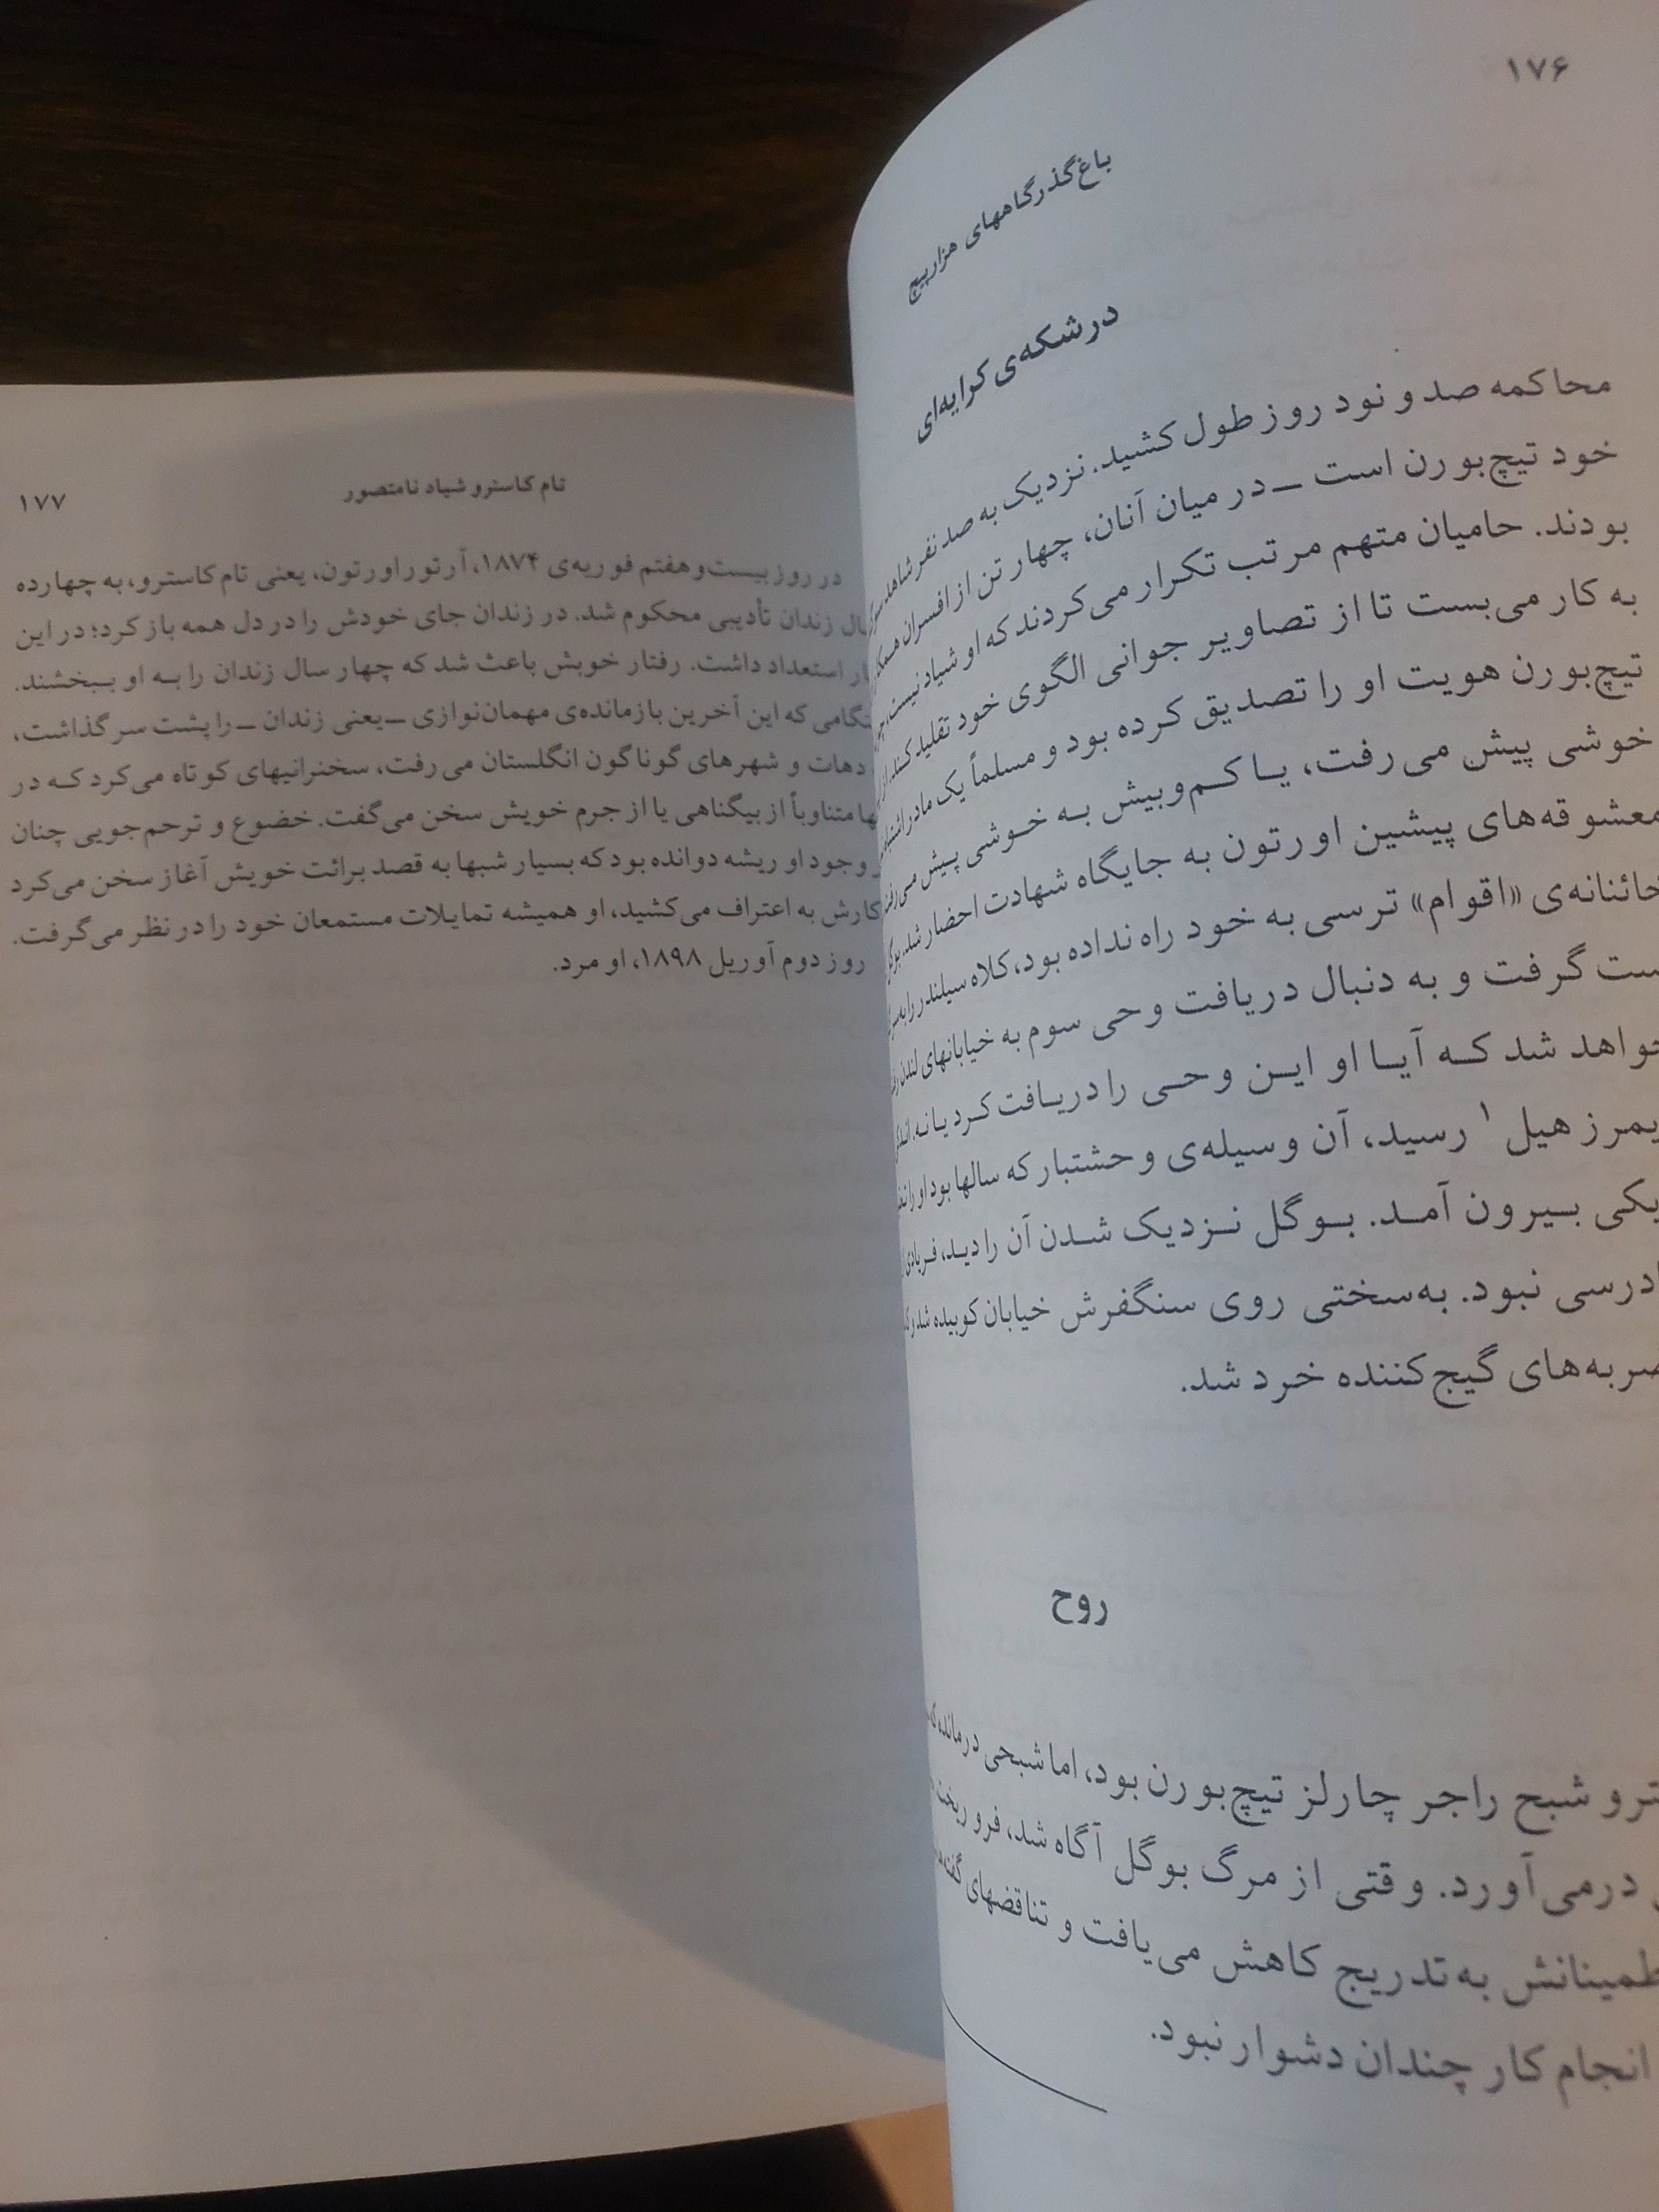 ۱۷۶
باغ گذرگاههای هزارپیچ
درشکه‌ی کرایه‌ای
محاکمه صد و نود روز طول کشید. نزدیک به صد نفر شاهد
خود تیچ‌بورن است ــ در میان آنان، چهار تن از افسران
بودند. حامیان متهم مرتب تکرار می‌کردند که او شیاد نیست،
به کار می‌بست تا از تصاویر جوانی الگوی خود تقلید کند.
تیچ‌بورن هویت او را تصدیق کرده بود و مسلماً یک مادر
خوشی پیش می‌رفت، یا کم‌وبیش به خوشی پیش می‌رفت
معشوقه‌های پیشین اورتون به جایگاه شهادت احضار شد.
خائنانه‌ی «اقوام» ترسی به خود راه نداده بود، کلاه سیلندر را
گرفت و به دنبال دریافت وحی سوم به خیابانهای لندن
شد که آیا او این وحی را دریافت کرد یا نه.
هیل ۱ رسید، آن وسیله‌ی وحشتبار که سالها بود او را
بیرون آمد. بوگل نزدیک شدن آن را دید، فریادی
نبود. به‌سختی روی سنگفرش خیابان کوبیده شد و
ضربه‌های گیج‌کننده خرد شد.
روح
شبح راجر چارلز تیچ‌بورن بود، اما شبحی درمانده
درمی‌آورد. وقتی از مرگ بوگل آگاه شد، فرو ریخت.
به‌تدریج کاهش می‌یافت و تناقضهای
انجام کار چندان دشوار نبود.
تام کاسترو شیاد نامتصور
۱۷۷
در روز بیست‌وهفتم فوریه‌ی ۱۸۷۴، آرتور اورتون، یعنی تام کاسترو، به چهارده
زندان تأدیبی محکوم شد. در زندان جای خودش را در دل همه باز کرد؛ در این
استعداد داشت. رفتار خوبش باعث شد که چهار سال زندان را به او ببخشند.
که این آخرین بازمانده‌ی مهمان‌نوازی ــ یعنی زندان ــ را پشت سر گذاشت،
دهات و شهرهای گوناگون انگلستان می‌رفت، سخنرانیهای کوتاه می‌کرد که در
متناوباً از بیگناهی یا از جرم خویش سخن می‌گفت. خضوع و ترحم‌جویی چنان
وجود او ریشه دوانده بود که بسیار شبها به قصد برائت خویش آغاز سخن می‌کرد
کارش به اعتراف می‌کشید، او همیشه تمایلات مستمعان خود را در نظر می‌گرفت.
روز دوم آوریل ۱۸۹۸، او مرد.